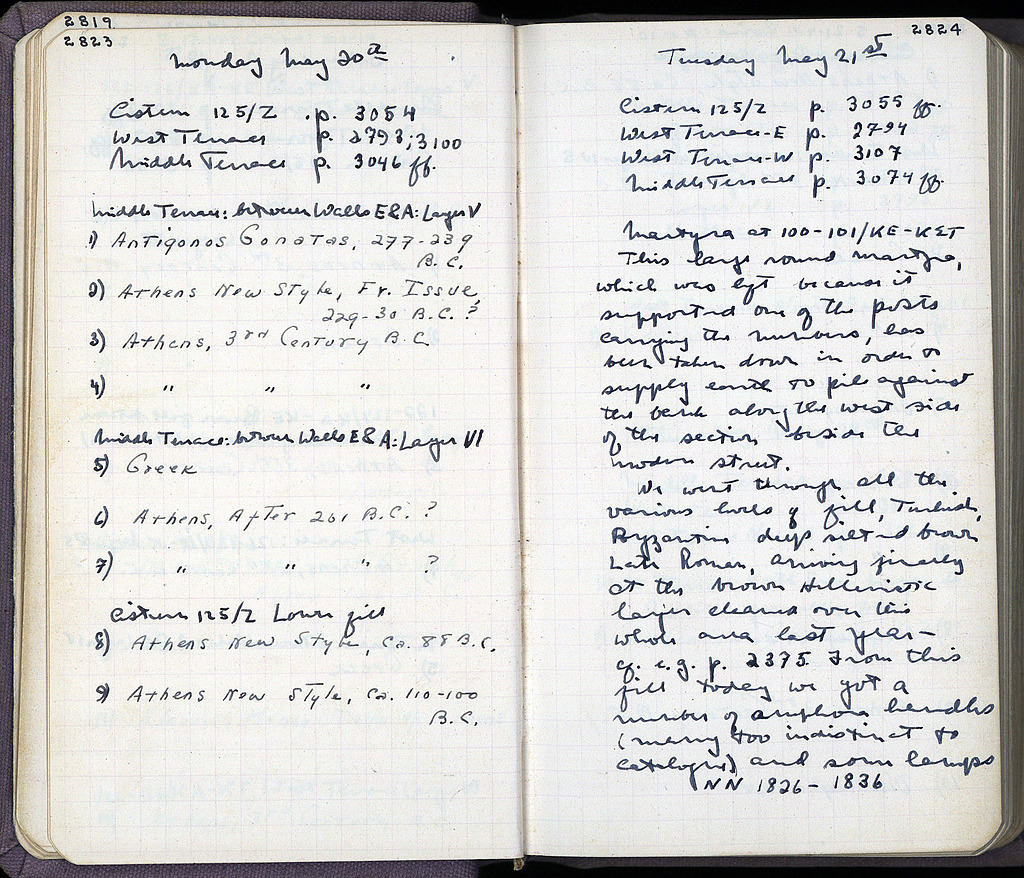 2819
2823
Monday May 20th
Cistern 125/Z p. 3054
West Terrace p. 2793; 3100
Middle Terrace p. 3046 ff.
Middle Terrace: between Walls E & A: Layer V
1) Antigonos Gonatas, 277-239
B.C.
2) Athens New Style, Fr. Issue,
229-30 B.C. ?
3) Athens, 3rd Century B.C.
4) " " "
Middle Terrace: between Walls E & A: Layer VI
5) Greek
6) Athens, After 261 B.C. ?
7) " " ?
Cistern 125/Z Lower fill
8) Athens New Style, ca. 88 B.C.
9) Athens New Style, ca. 110-100
B.C.
2824
Tuesday May 21st
Cistern 125/Z p. 3055 ff.
West Terrace-E p. 2794
West Terrace-W p. 3107
Middle Terrace p. 3074 ff.
Martyra at 100-101/ΚΕ-ΚΣΤ
This large round martyra,
which was left because it
supported one of the posts
carrying the numbers, has
been taken down in order to
supply earth to pile against
the bank along the west side
of the section beside the
modern street.
We went through all the
various levels of fill, Turkish,
Byzantine deep silted brown
Late Roman, arriving finally
at the brown Hellenistic
layer cleared over this
whole area last year—
cf. e.g. p. 2375. From this
fill today we got a
number of amphora handles
(many too indistinct to
catalogue) and some lamps
NN 1826 - 1836